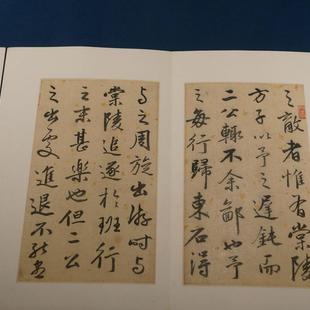 之敵者惟有棠陵
方子以予之遲鈍而
二公輙不余鄙也予
之每行歸東石得
與之周旋出游時與
棠陵追逐於班行
之末甚樂也但二公
之出處進退不能盡